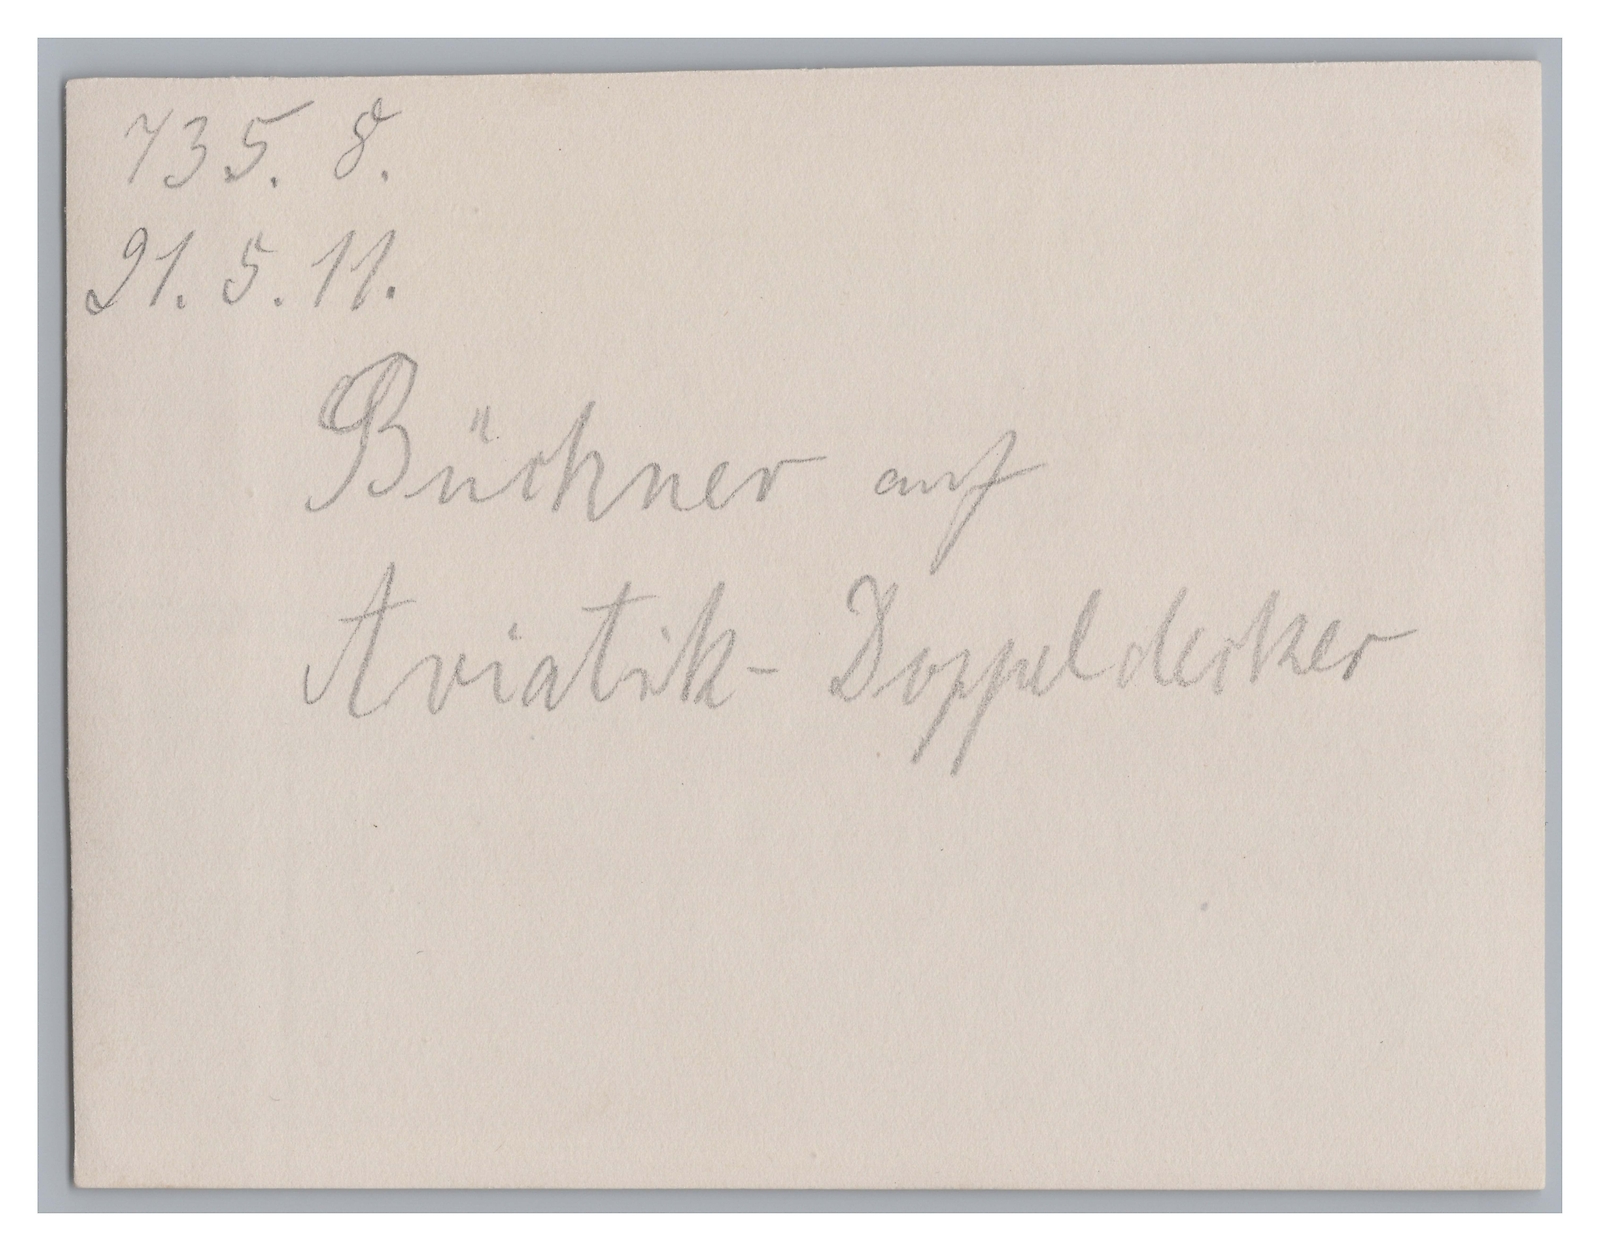 735. 8.
21. 5. 11.
Büchner auf
Aviatik- Doppeldecker